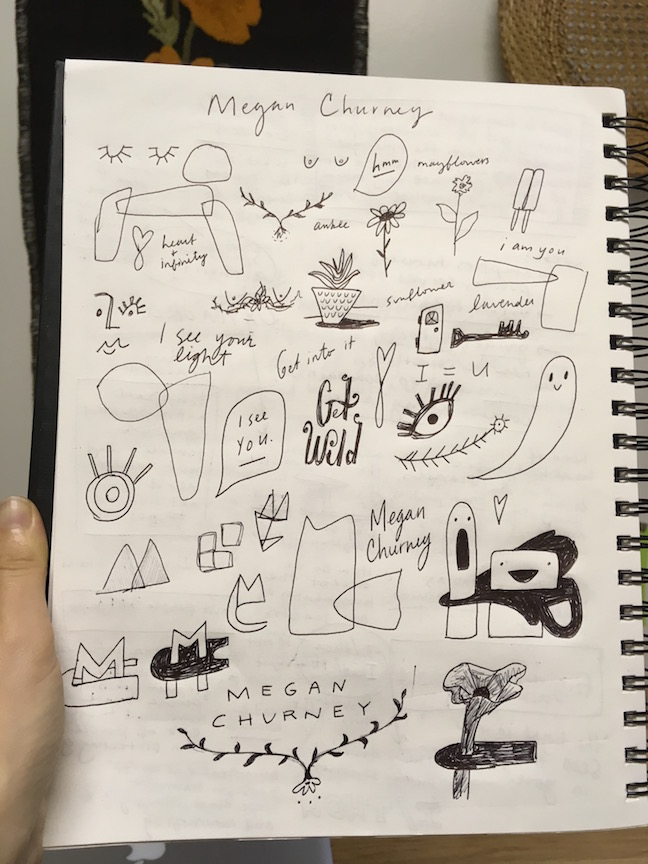 Megan Churney
hmm
mayflowers
heart
+
infinity
i am you
sunflower
lavender
I see your
light
Get into it
I = U
I see
YOU.
Get
Wild
Megan
Churney
MEGAN
CHURNEY